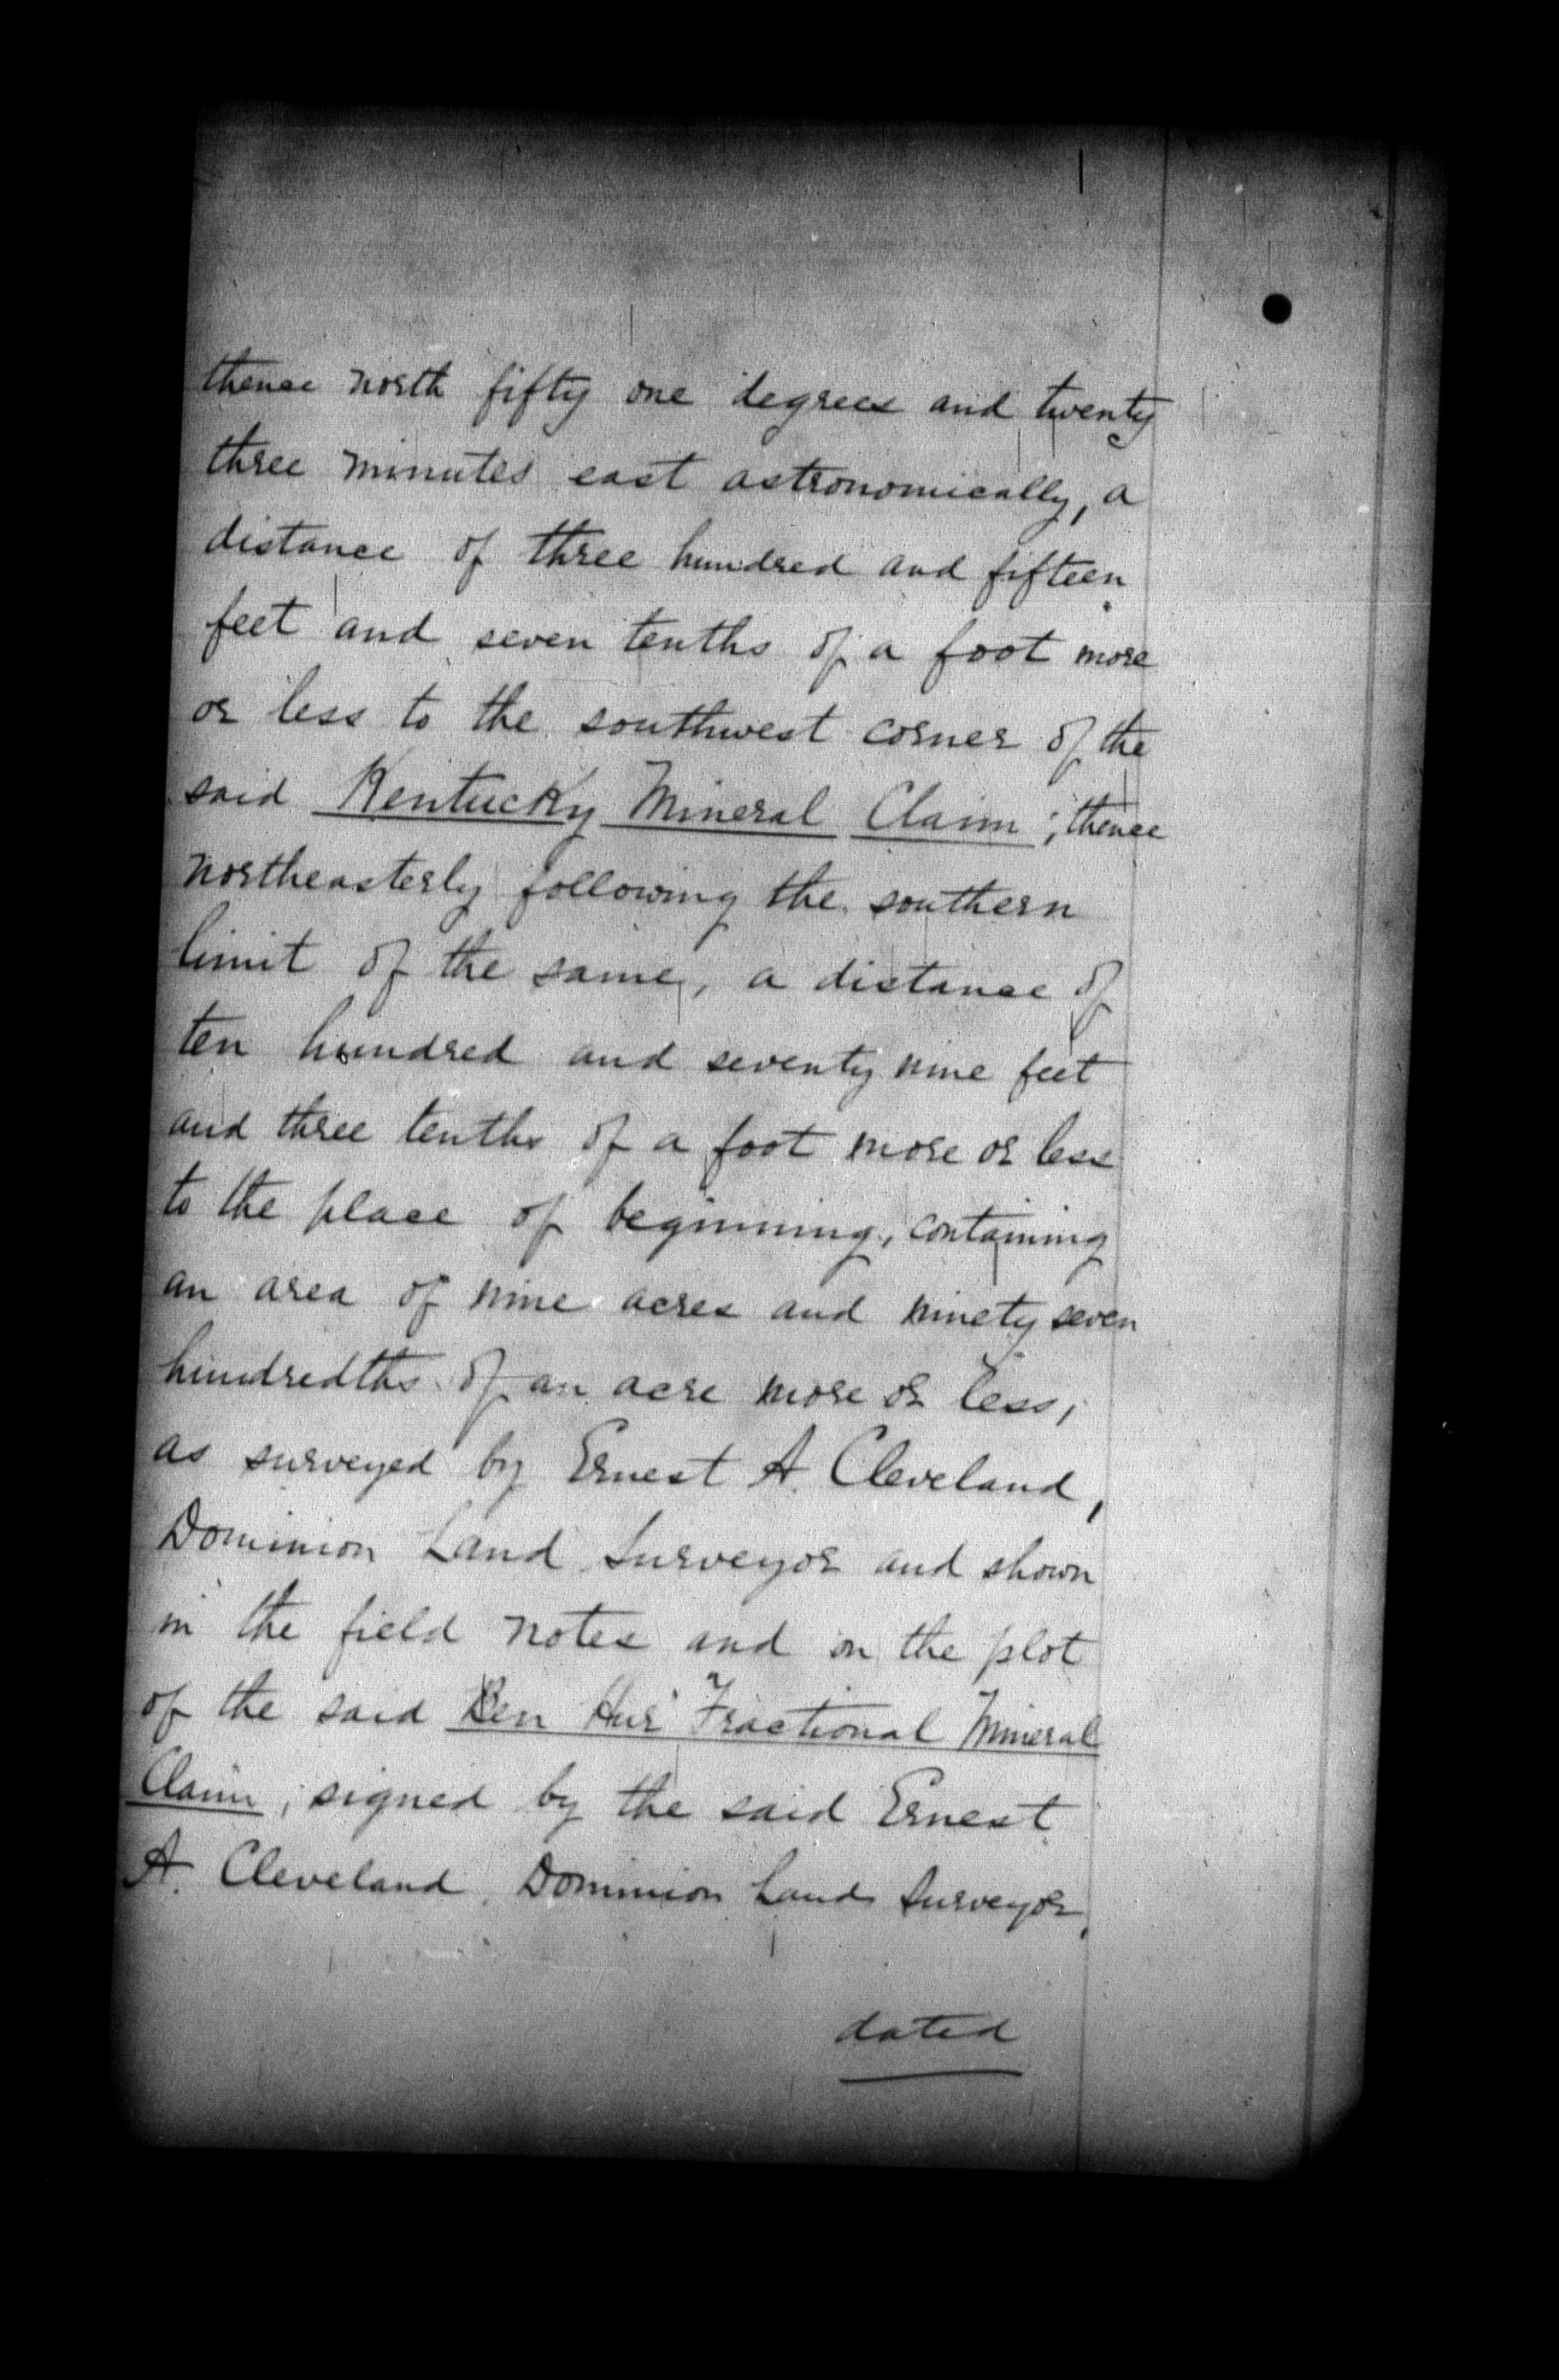 thence north fifty one degrees and twenty
three minutes east astronomically, a
distance of three hundred and fifteen
feet and seven tenths of a foot more
or less to the southwest corner of the
said Kentucky Mineral Claim; thence
northeasterly following the southern
limit of the same, a distance of
ten hundred and seventy nine feet
and three tenths of a foot more or less
to the place of beginning, containing
an area of nine acres and ninety seven
hundredths of an acre more or less,
as surveyed by Ernest A. Cleveland,
Dominion Land Surveyor and shown
in the field notes and on the plot
of the said Ben Hur Fractional Mineral
Claim, signed by the said Ernest
A. Cleveland, Dominion Land Surveyor,
dated